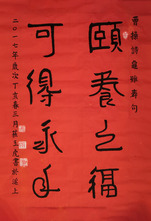 曹操詩龜雖壽句
頤養之福
可得永年
二〇一七年歲次丁 春三月 書於 上